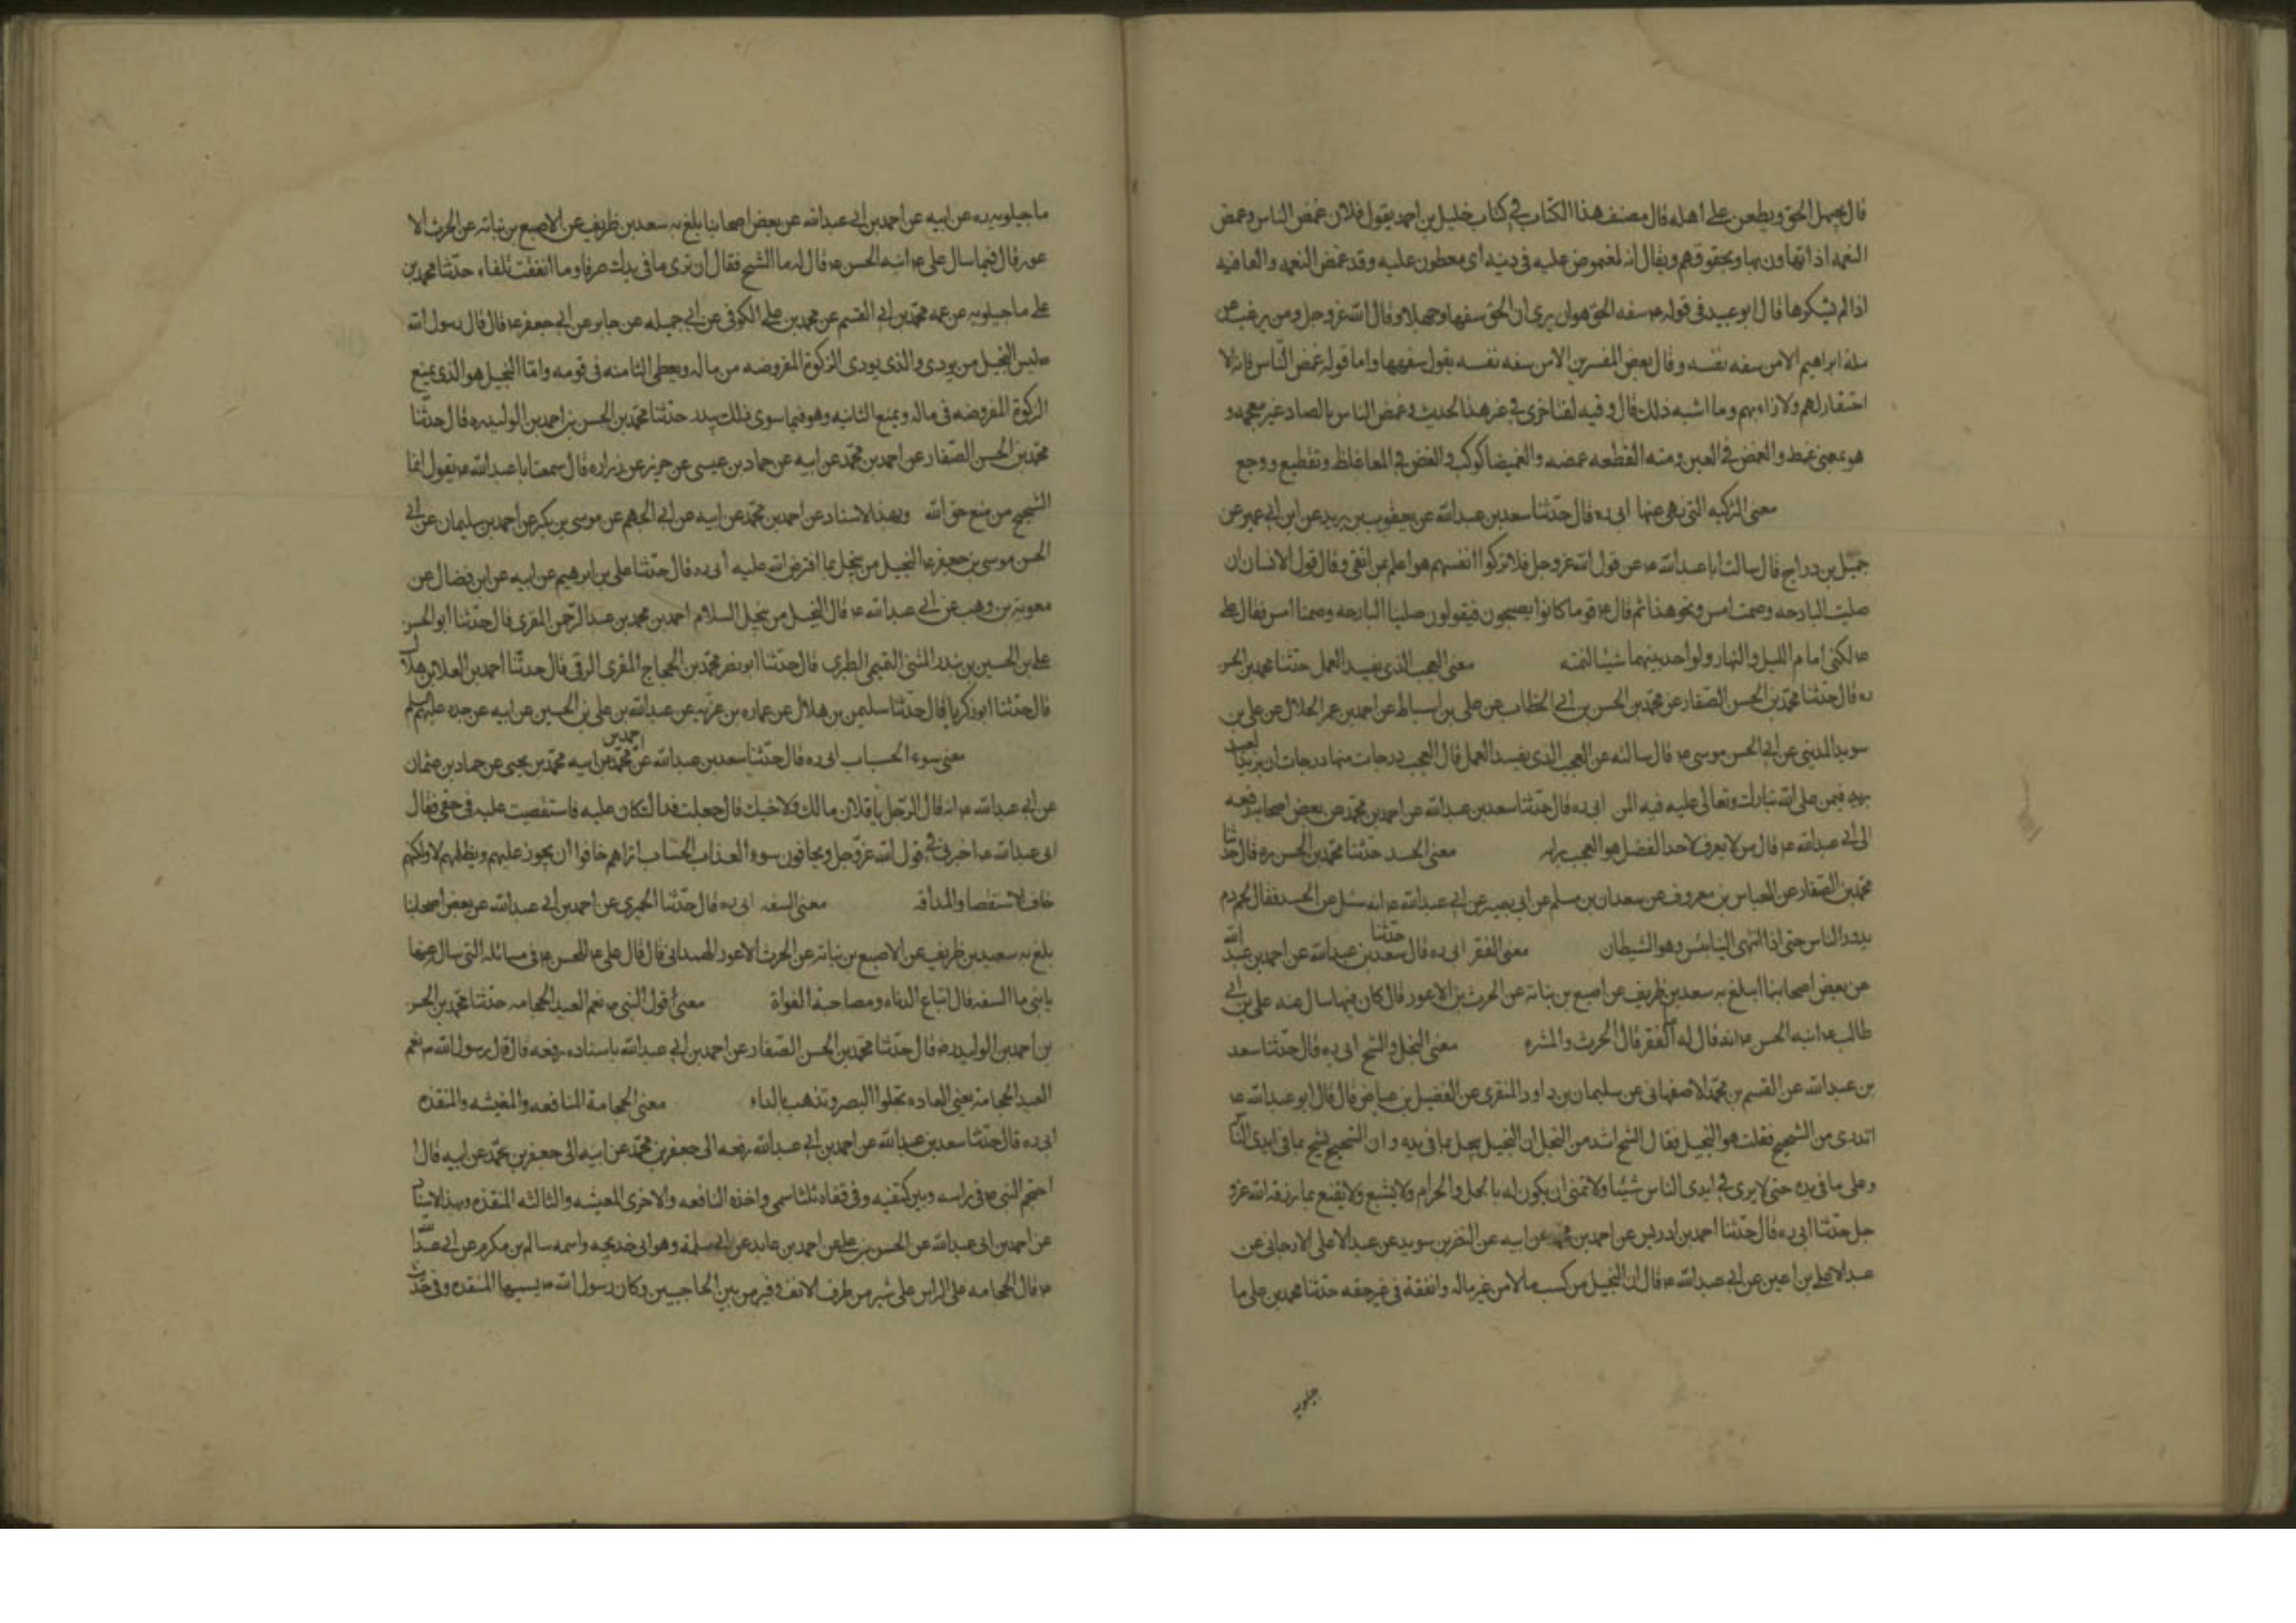 قال يجهل الحق ويطعن على اهله قال مصنف هذا الكتاب في كتاب خليل بن احمد يقول فلان غمض الناس وغمض
النعمه اذا تهاون بها وبحقوقهم ويقال انه لمغموض عليه في دينه اى مطعون عليه وقد غمض النعمه والعافيه
اذا لم يشكرها قال ابو عبيد في قوله ع سفه الحق هو ان يرى ان الحق سفها وجهلا وقال الله عز وجل ومن يرغب عن
ملة ابراهيم الا من سفه نفسه وقال بعض المفسرين الا من سفه نفسه يقول سفهها واما قوله غمض الناس فانه الا
احتقار لهم والازراء بهم وما اشبه ذلك قال وفيه لغة اخرى في غير هذا الحديث وغمص الناس بالصاد غير معجمه و
هو بمعنى غمط والغمص في العين ومنه القطعه غمصه والغميصا كوكب والغمص في المعا غلظ وتقطيع ووجع
معنى التزكيه التي نهى عنها ابى ره قال حدثنا سعد بن عبدالله عن يعقوب بن يزيد عن ابن ابي عمير عن
جميل بن دراج قال سالت ابا عبدالله ع عن قول الله عز وجل فلا تزكوا انفسهم هو اعلم بمن اتقى وقال قول الانسان ان
صليت البارحه وصمت امس ونحو هذا ثم قال ع قوما كانوا يصبحون فيقولون صلينا البارحه وصمنا امس فقال على
ع لكنى انام الليل والنهار ولو اجد بينهما شيئا لنمته معنى العجب الذى يفسد العمل حدثنا محمد بن الحسن
ره قال حدثنا محمد بن الحسن الصفار عن محمد بن الحسن بن ابى الخطاب عن على بن اسباط عن احمد بن عمر الحلال عن على بن
سويد المدينى عن ابى الحسن موسى ع قال سالته عن العجب الذى يفسد العمل قال العجب درجات منها درجات ان يزين للعبد
بربه فيمن على الله تبارك وتعالى عليه فيه المن ابى ره قال حدثنا سعد بن عبدالله عن احمد بن محمد عن بعض اصحابه رفعه
الى ابى عبدالله ع قال من لا يعرف لاحد الفضل هو المعجب برايه معنى الحسد حدثنا محمد بن الحسن ره قال حدثنا
محمد بن الصفار عن العباس بن معروف عن سعدان بن مسلم عن ابى بصير عن ابى عبدالله ع انه سئل عن الحسد فقال لحم ودم
يدور الناس حتى اذا انتهى الينا يئس وهو الشيطان معنى الفقر ابى ره قال حدثنا سعد بن عبدالله عن احمد بن عبد الله
عن بعض اصحابنا ابلغ به سعد بن طريف عن اصبغ بن نباته عن الحرث بن الاعور قال كان فيما سال عنه على بن ابى
طالب ع ابنه الحسن ع انه قال له ما الفقر قال الحرث والشره معنى البخل والشح ابى ره قال حدثنا سعد
بن عبدالله عن القسم بن محمد الاصفهانى عن سليمان بن داود المنقرى عن الفضيل بن عياض قال قال ابو عبدالله ع
اتدرى من الشحيح فقلت هو البخيل فقال الشح اشد من البخل ان البخيل يبخل بما في يديه وان الشحيح يشح بما في ايدى الناس
وعلى ما في يده حتى لا يرى في ايدى الناس شيئا ولا تمنى ان يكون له بالحل والحرام ولا يشبع ولا يقنع بما رزقه الله عزو
جل حدثنا ابى ره قال حدثنا احمد بن ادريس عن احمد بن محمد عن ابيه عن النضر بن سويد عن عبد الاعلى الارجانى عن
عبد الاعلى بن اعين عن ابى عبدالله ع قال ان البخيل من كسب مالا من غير ماله وانفقه فى غير حقه حدثنا محمد بن على ما
جيلويه
ماجيلويه ره عن ابيه عن احمد بن ابى عبدالله عن بعض اصحابنا بلغ به سعد بن طريف عن الاصبغ بن نباته عن الحرث الا
عور قال فيما سال على ع ابنه الحسن ع قال له ما الشح فقال ان ترى ما فى يدك صرفا وما انفقت تلفاء حدثنا محمد بن
على ماجيلويه عن عمه محمد بن ابى القسم عن محمد بن على الكوفى عن ابى جميله عن جابر عن ابى جعفر ع قال قال رسول الله
ص ليس البخيل من يودى والذى يودى الزكوة المفروضه من ماله ويعطى الثامنه فى قومه وانما البخيل هو الذى يمنع
الزكوة المفروضه فى ماله ويمنع الثانيه وهو فيما سوى ذلك يبذر حدثنا محمد بن الحسن بن احمد بن الوليد ره قال حدثنا
محمد بن الحسن الصفار عن احمد بن محمد عن ابيه عن حماد بن عيسى عن حريز عن زراره قال سمعت ابا عبدالله ع يقول انما
الشحيح من منع حق الله وبهذا الاسناد عن احمد بن محمد عن ابيه عن ابى الجهم عن موسى بن بكر عن احمد بن سليمان عن ابى
الحسن موسى بن جعفر ع البخيل من بخل بما افترض الله عليه ابى ره قال حدثنا على بن ابرهيم عن ابيه عن ابن فضال عن
معوية بن وهب عن ابى عبدالله ع قال البخيل من بخل السلام احمد بن محمد بن عبد الرحمن المقرى قال حدثنا ابو الحسن
على بن الحسين بن بندر المثنى التميمى الطبرى قال حدثنا ابو نصر محمد بن الحجاج المقرى الرقى قال حدثنا احمد بن العلا بن هلال
قال حدثنا ابو زكريا قال حدثنا سليمن بن هلال عن عماره بن غزيه عن عبدالله بن على بن الحسين عن ابيه عن جده عليهم السلم
معنى سوء الحساب ابى ره قال حدثنا سعد بن عبدالله عن احمد بن محمد عن ابيه محمد بن يحيى عن حماد بن عثمان
عن ابى عبدالله ع انه قال لرجل يا فلان مالك ولاخيك قال جعلت فداك كان عليه فاستقصيت عليه فى حقى فقال
ابى عبدالله ع اخبرنى فى قول الله عز وجل ويخافون سوء العذاب الحساب اتراهم خافوا ان يجور عليهم ويظلمهم لا ولكنهم
خاف الاستقصا والمداقه معنى السفه ابى ره قال حدثنا الحميرى عن احمد بن ابى عبدالله عن بعض اصحابنا
بلغ به سعيد بن طريف عن الاصبغ بن نباته عن الحرث الاعور الهمدانى قال قال على ع للحسن ع فى مسائله التى سال عنها
يا بنى ما السفه قال اتباع الدناه ومصاحبة الغواة معنى قول النبى ص نعم العيد الحجامه حدثنا محمد بن الحسن
بن احمد بن الوليد ره قال حدثنا محمد بن الحسن الصفار عن احمد بن ابى عبدالله باسناده رفعه قال قال رسول الله ص نعم
العيد الحجامة يعنى العاده تجلوا البصر وتذهب بالداء معنى الحجامة النافعه والمغيثه والمنقذه
ابى ره قال حدثنا سعد بن عبدالله عن احمد بن ابى عبدالله رفعه الى جعفر بن محمد عن ابيه الى جعفر بن محمد عن ابيه قال
احتجم النبى ص فى راسه وبين كتفيه وفى قفاه ثلثا سمى واخذه النافعه والاخرى المغيثه والثالثه المنقذه وبهذا الاسناد
عن احمد بن ابى عبدالله عن الحسن بن على عن احمد بن عايد عن ابى سلمة وهو ابى خديجه واسمه سالم بن مكرم عن ابى عبدالله
ع قال الحجامه على الراس على شبر من طرف الانف وفتر من بين الحاجبين وكان رسول الله ص يسميها المنقذه وفى حديث